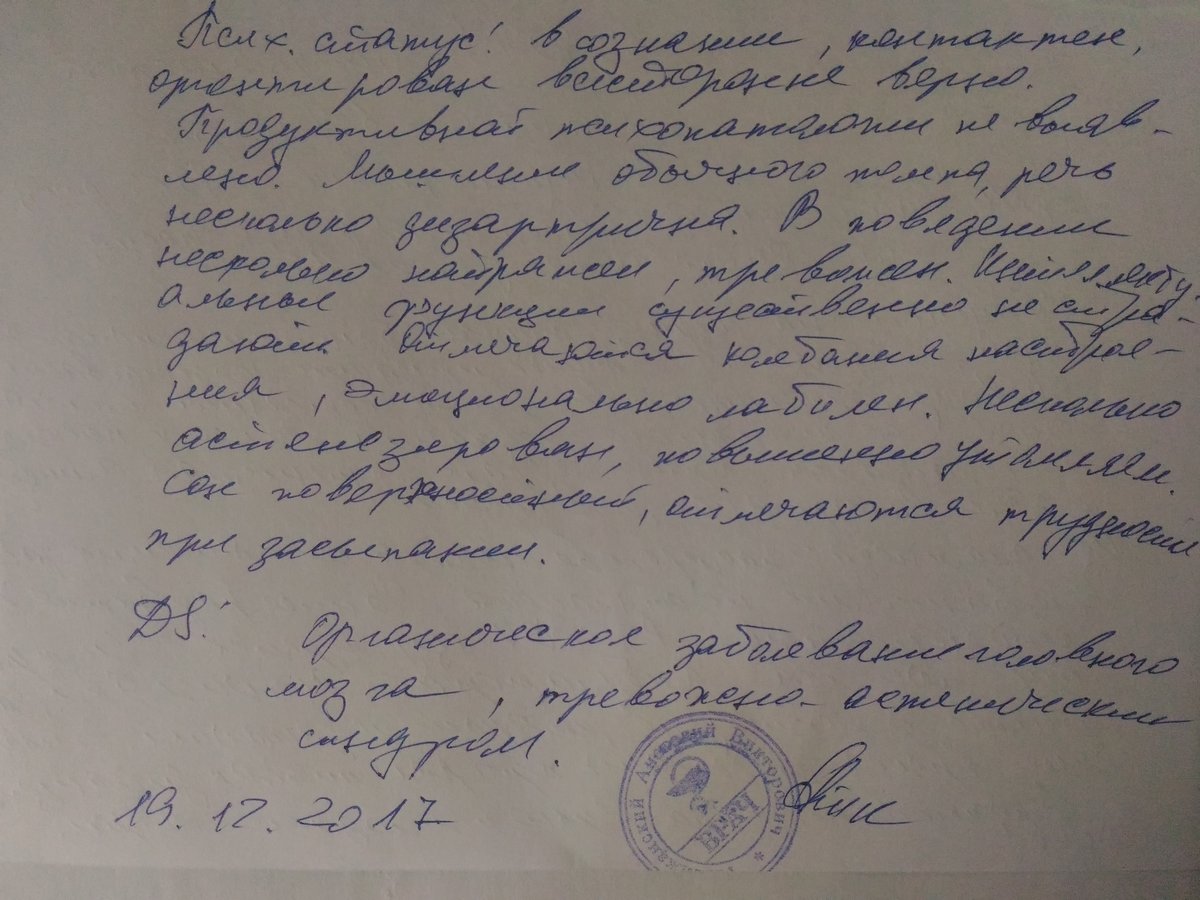 Псих. статус: в сознании, контактен,
ориентирован всесторонне верно.
Продуктивной психопатологии не выяв-
лено. Мышление обычного темпа, речь
несколько дизартрична. В поведении
несколько напряжен, тревожен. Интеллекту-
альные функции существенно не стра-
дают. Отмечаются колебания настрое-
ния, эмоционально лабилен. Несколько
астенезирован, повышенно утомляем.
Сон поверхностный, отмечаются трудности
при засыпании.
DS: Органическое заболевание головного
мозга, тревожно-астенический
синдром.
19.12.2017
Анатолий Викторович
ВРАЧ